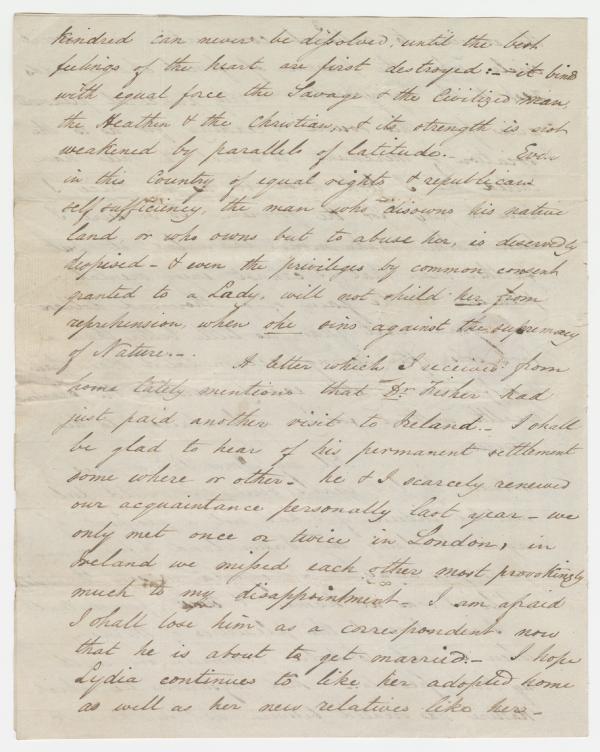 kindred can never be dissolved, until the best
feelings of the heart are first destroyed:- it binds
with equal force the Savage & the Civilized man,
the Heathen & the Christian, & its strength is not
weakened by parallels of latitude.- Even
in this Country of equal rights & republican
self sufficiency, the man who disowns his native
land, or who owns but to abuse her, is deservedly
despised - & even the privileges by common consent
granted to a Lady, will not shield her from
reprehension, when she sins against the supremacy
of Nature.-
A letter which I received from
home lately mentions that Dr. Fisher had
just paid another visit to Ireland.- I shall
be glad to hear of his permanent settlement
some where or other - he & I scarcely renewed
our acquaintance personally last year - we
only met once or twice in London, in
Ireland we missed each other most provokingly
much to my disappointment - I am afraid
I shall lose him as a correspondent now
that he is about to get married.- I hope
Lydia continues to like her adopted home
as well as her new relatives like her -